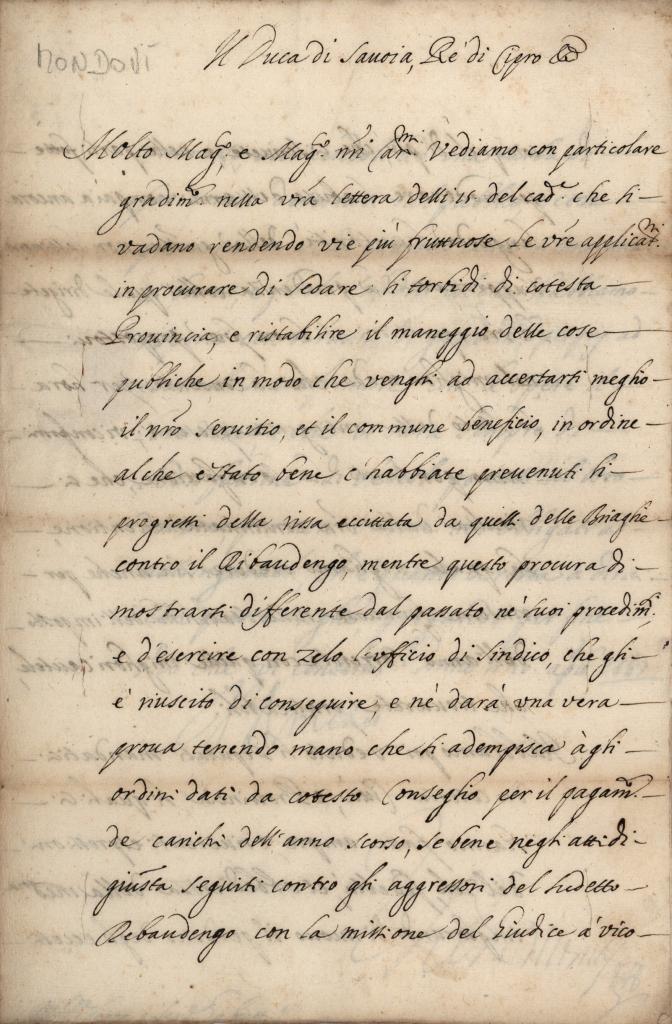 MONDOVI
Il Duca di Savoia, Rè di Cipro &c
Molto Mag.ci e Mag.ci nri Car.mi Vediamo con particolare
gradim.to nella vra lettera delli 15 del cad.te che si
vadano rendendo vie più fruttuose le vre applicat.ni
in procurare di sedare li torbidi di cotesta
Provincia, e ristabilire il maneggio delle cose
publiche in modo che venghi ad accertarsi meglio
il nro servitio, et il commune beneficio, in ordine
al che è stato bene c'habbiate prevenuti li
progressi della rissa eccittata da quelli delle Briaglie
contro il Ribaudengo, mentre questo procura di
mostrarsi differente dal passato ne' suoi procedim.ti
e d'esercire con zelo l'ufficio di Sindico, che gli
è riuscito di conseguire, e nè darà una vera
prova tenendo mano che si adempisca à gli
ordini dati da cotesto Conseglio per il pagam.to
de carichi dell'anno scorso, se bene negli atti di
giusta seguiti contro gli aggressori del sudetto
Rebaudengo con la missione del Giudice à vico